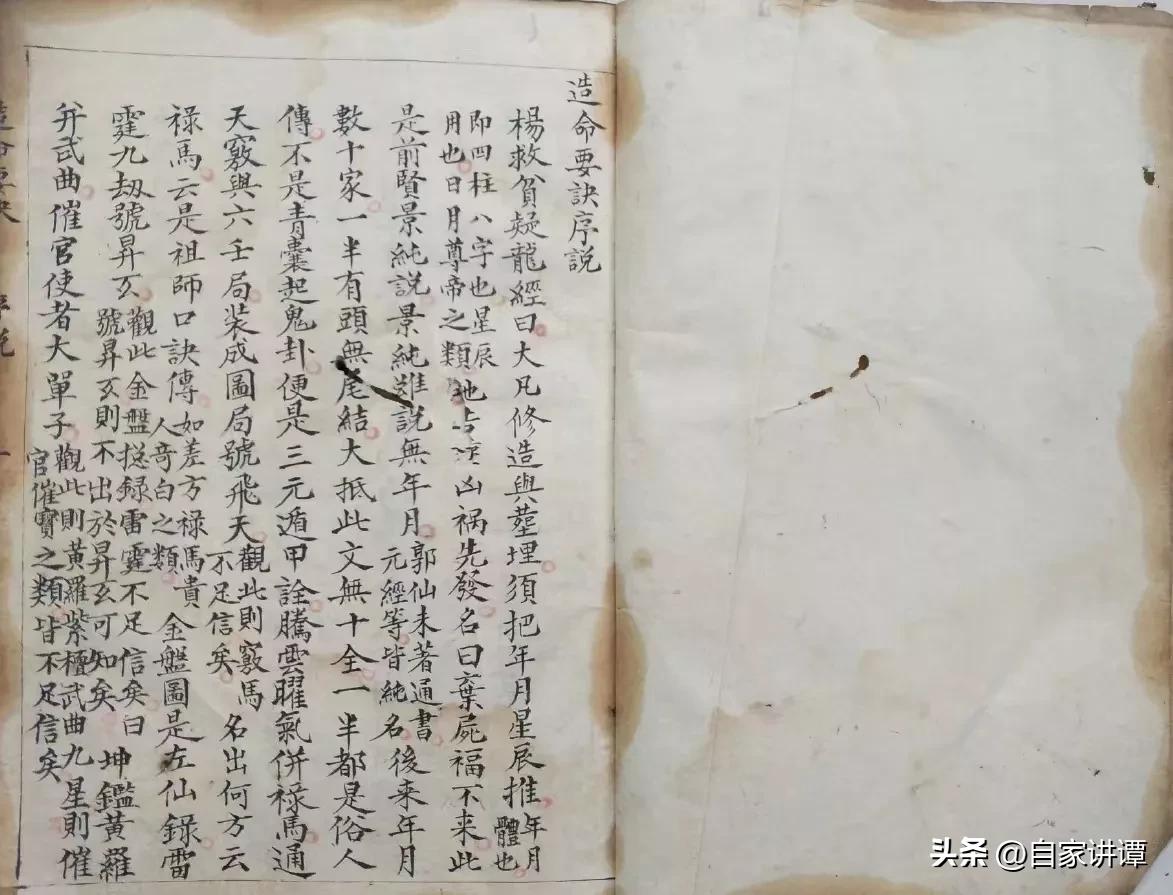 造命要訣序説
楊救貧疑龍經曰大凡修造與塟埋須把年月星辰推年月體也
即四柱八字也星辰月也日月尊帝之類地吉凶禍先發名曰棄屍福不来此
是前賢景純説景純雖説無年月郭仙未著通書元經等皆純名後来年月
數十家一半有頭無尾結大抵此文無十全一半都是俗人
傳不是青囊起鬼卦便是三元遁甲詮騰雲曜氣併禄馬通
天竅與六壬局装成圖局號飛天觀此則竅馬不足信矣名出何方云
禄馬云是祖師口訣傳如差方禄馬貴人竒白之類金盤圖是左仙錄雷
霆九劫號昇玄觀此金盤捴録雷霆不足信矣曰號昇玄則不出於昇玄可知矣坤鑑黃羅
并武曲催官使者大單子觀此則黃羅紫檀武曲九星則催官催寶之類皆不足信矣
头条 @自家讲谭